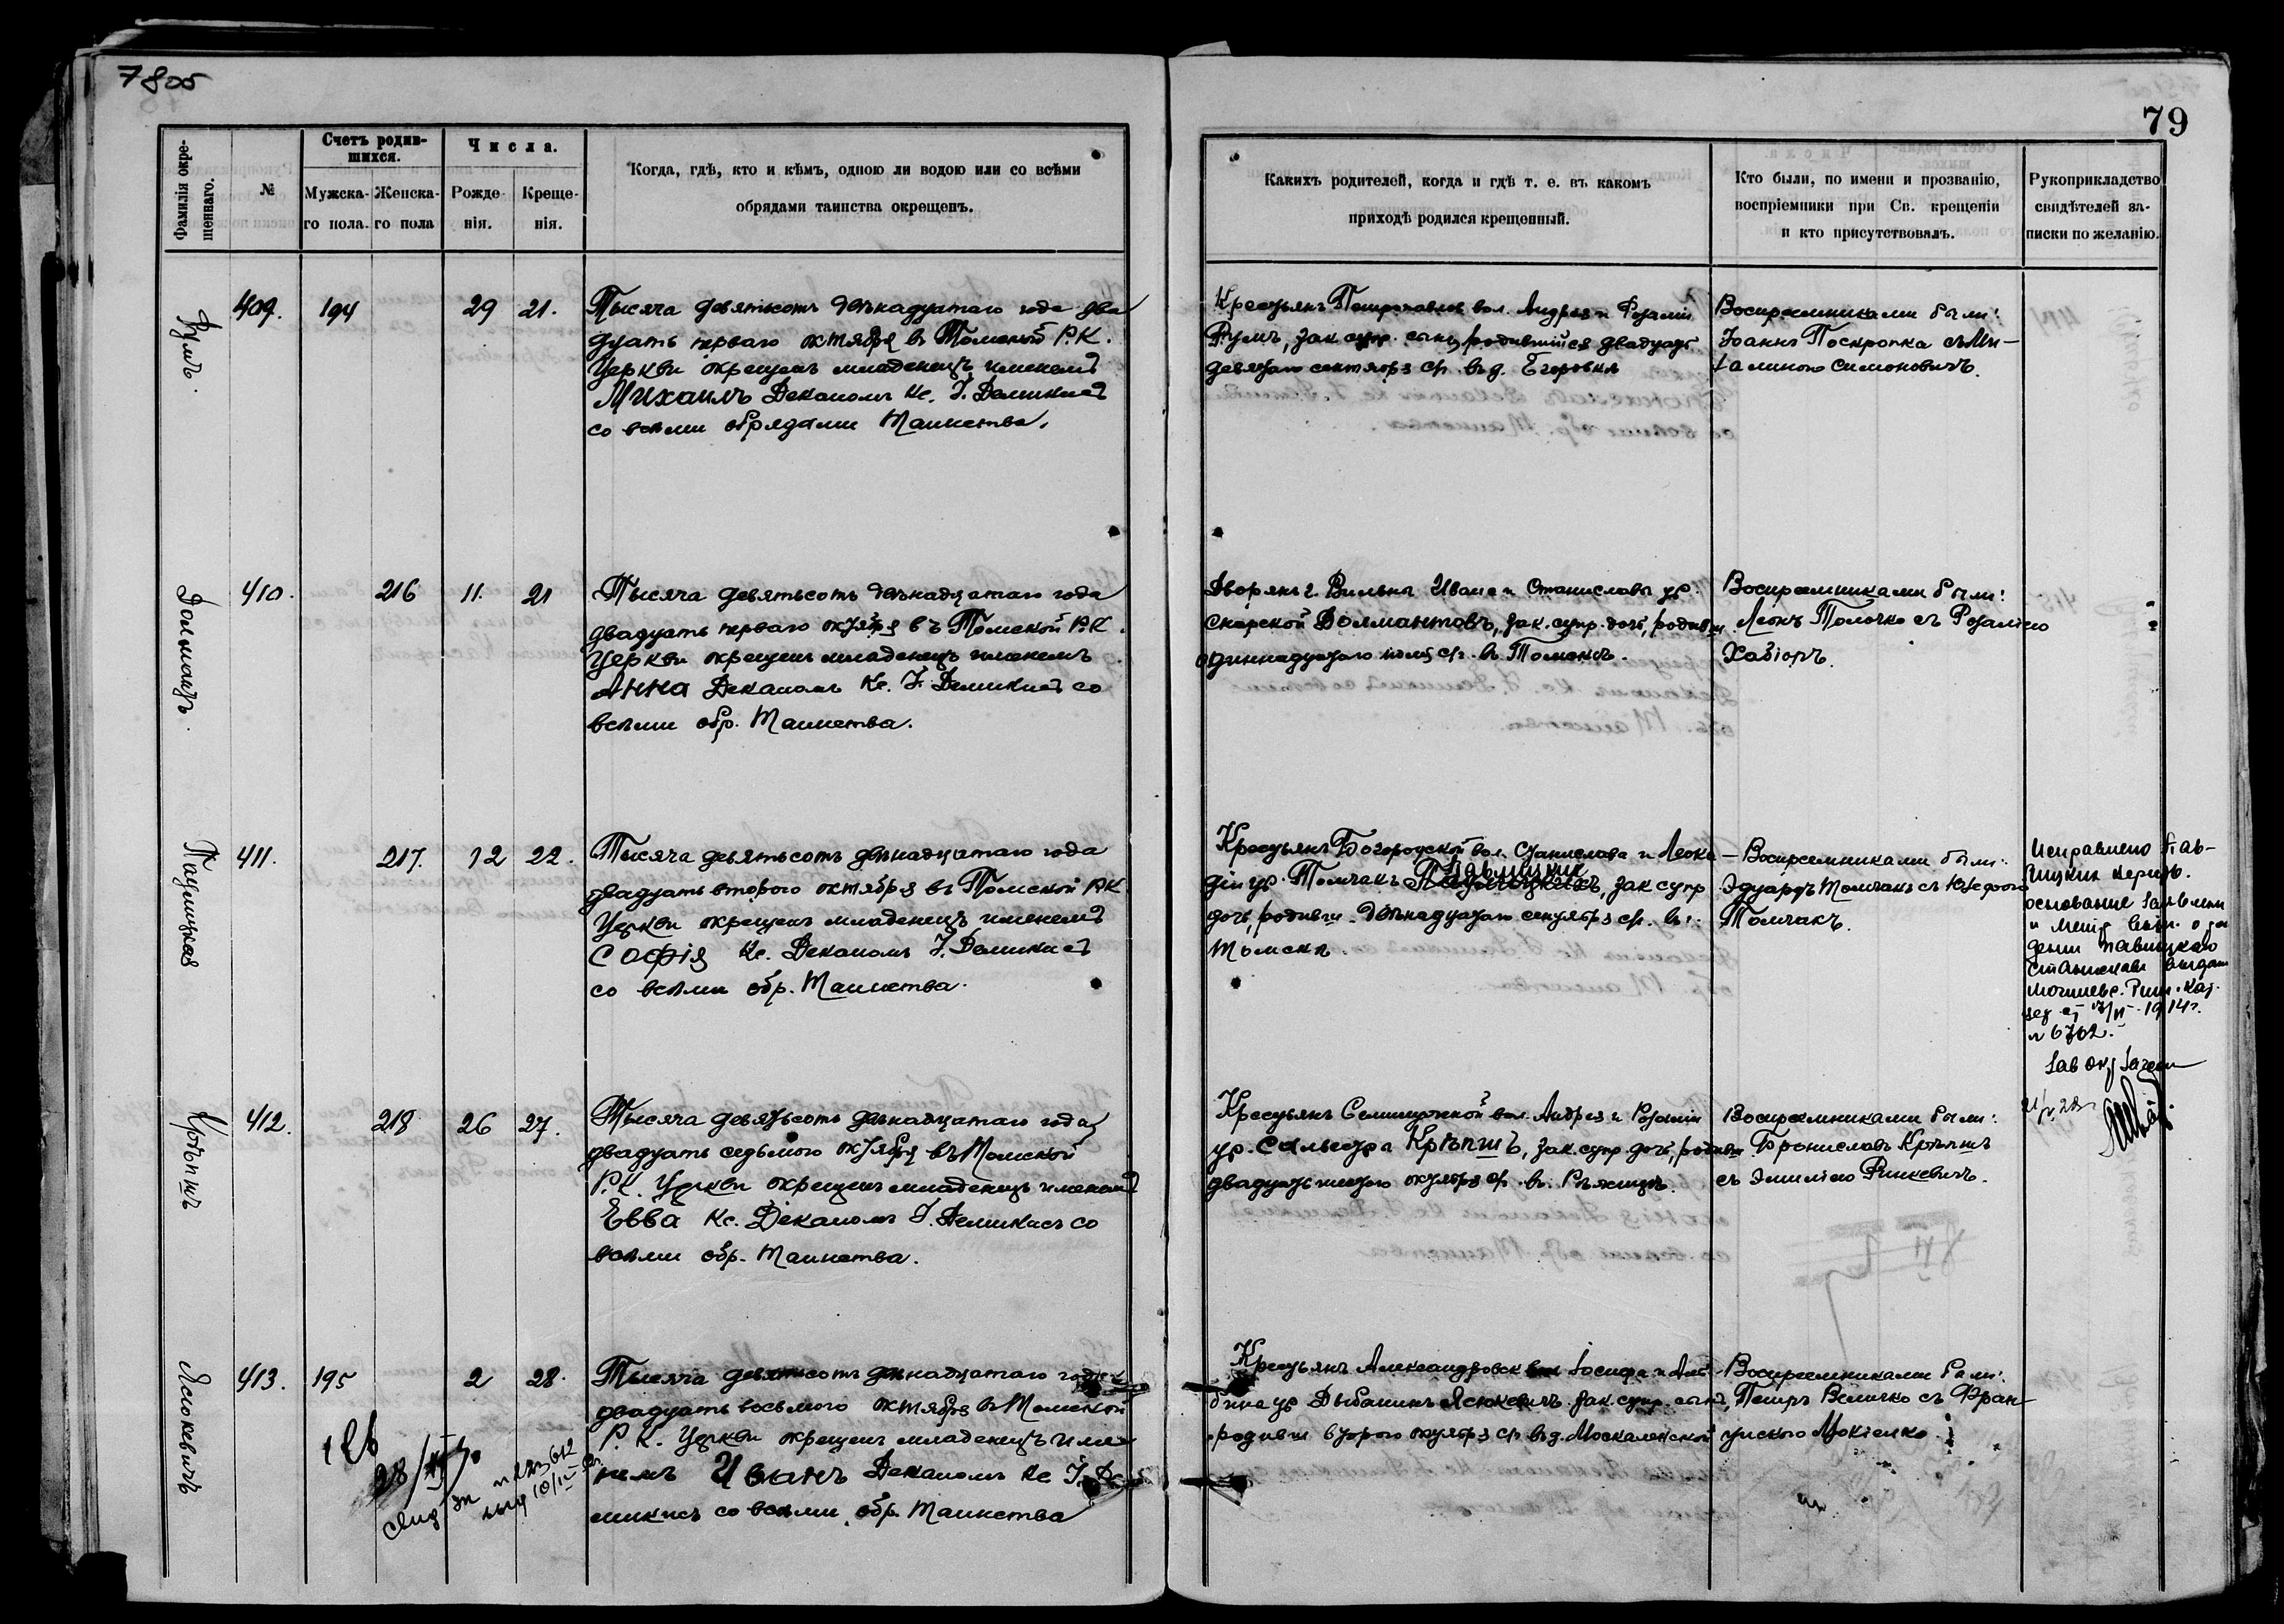 7805
79
Фамилія окрещеннаго.
№
Счетъ родившихся.
Мужска-го пола.
Женска-го пола
Числа.
Рожде-нія.
Креще-нія.
Когда, гдѣ, кто и кѣмъ, одною ли водою или со всѣми
обрядами таинства окрещенъ.
Какихъ родителей, когда и гдѣ т. е. въ какомъ
приходѣ родился крещенный.
Кто были, по имени и прозванію,
воспріемники при Св. крещеніи
и кто присутствовалъ.
Рукоприкладство
свидѣтелей за-
писки по желанію.
409. 194 29 21.
Тысяча девятьсотъ двѣнадцатаго года два
дцать перваго октября въ Томской Р.К.
Церкви окрещенъ младенецъ именемъ
Михаилъ Деканомъ Кс. І. Демикисъ
со всѣми обрядами Таинства.
Крестьянъ Петропавлов. вол. Андрея и Розаліи
Румъ, зак. супр. сынъ, родившійся двадцать
девятаго сентября с/г. въ д. Егоровкѣ
Воспреемниками были:
Іоаннъ Поскропка съ Ми-
халиною Симоновичъ.
Долмантъ.
410. 216 11. 21
Тысяча девятьсотъ двѣнадцатаго года
двадцать перваго октября въ Томской Р.К.
Церкви окрещенъ младенецъ именемъ
Анна Деканомъ Кс. І. Демикисъ со
всѣми обр. Таинства.
Дворянъ г. Вильны Ивана и Станиславы ур.
Скарской Долмантовъ, зак. супр. дочь, родивш
одиннадцатаго с/г. въ Томскѣ.
Воспреемниками были:
Леонъ Толочко съ Розаліею
Хабіоръ.
411. 217. 12 22.
Тысяча девятьсотъ двѣнадцатаго года
двадцать второго октября въ Томской Р.К.
Церкви окрещенъ младенецъ именемъ
Софія Кс. Деканомъ І. Демикисъ
со всѣми обр. Таинства.
Крестьянъ Богородской вол. Станислава и Леока-
діи ур. Томчакъ Павлицкихъ, зак. супр
дочь, родивш. двѣнадцатаго сентября с/г. въ г.
Томскѣ.
Воспреемниками были:
Эдуардъ Томчакъ съ
Томчакъ.
Исправлено Пав-
лицких
основание
Павлицкаго
1914 г.
№ 6702.
Крѣпшъ
412. 218 26 27.
Тысяча девятьсотъ двѣнадцатаго года
двадцать седьмого октября въ Томской
Р.К. Церкви окрещенъ младенецъ именемъ
Евва Кс. Деканомъ І. Демикисъ со
всѣми обр. Таинства.
Крестьянъ Семилужной вол. Андрея и Розаліи
ур. Сальвстра Крѣпшъ, зак. супр. дочь, родивш
двадцать шестого октября с/г. въ
Воспреемниками были:
Брониславъ Крѣпшъ
съ Эмиліею Ринкевичъ.
Ясюкевичъ
413. 195 2 28.
Тысяча девятьсотъ двѣнадцатаго года
двадцать восьмого октября въ Томской
Р.К. Церкви окрещенъ младенецъ име-
немъ Иванъ Деканомъ Кс І. Де
микисъ со всѣми обр. Таинства
Крестьянъ Александровск вол Іосифа и Аль-
бины ур Дыбанинъ Ясюкевичъ зак. супр. сынъ,
родивш второго октября с/г въ д. Москаленской
Воспреемниками были:
Петръ Величко съ Фран-